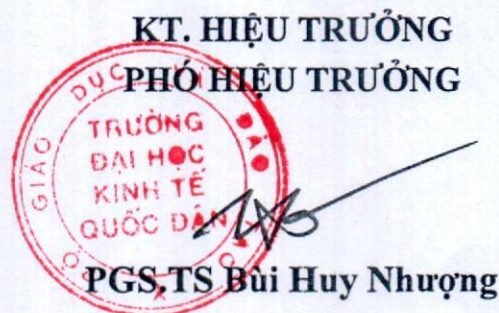 KT. HIỆU TRƯỞNG
PHÓ HIỆU TRƯỞNG
GIÁO DỤC
ĐÀO
TRƯỜNG
ĐẠI HỌC
KINH TẾ
QUỐC DÂN
PGS.TS Bùi Huy Nhượng